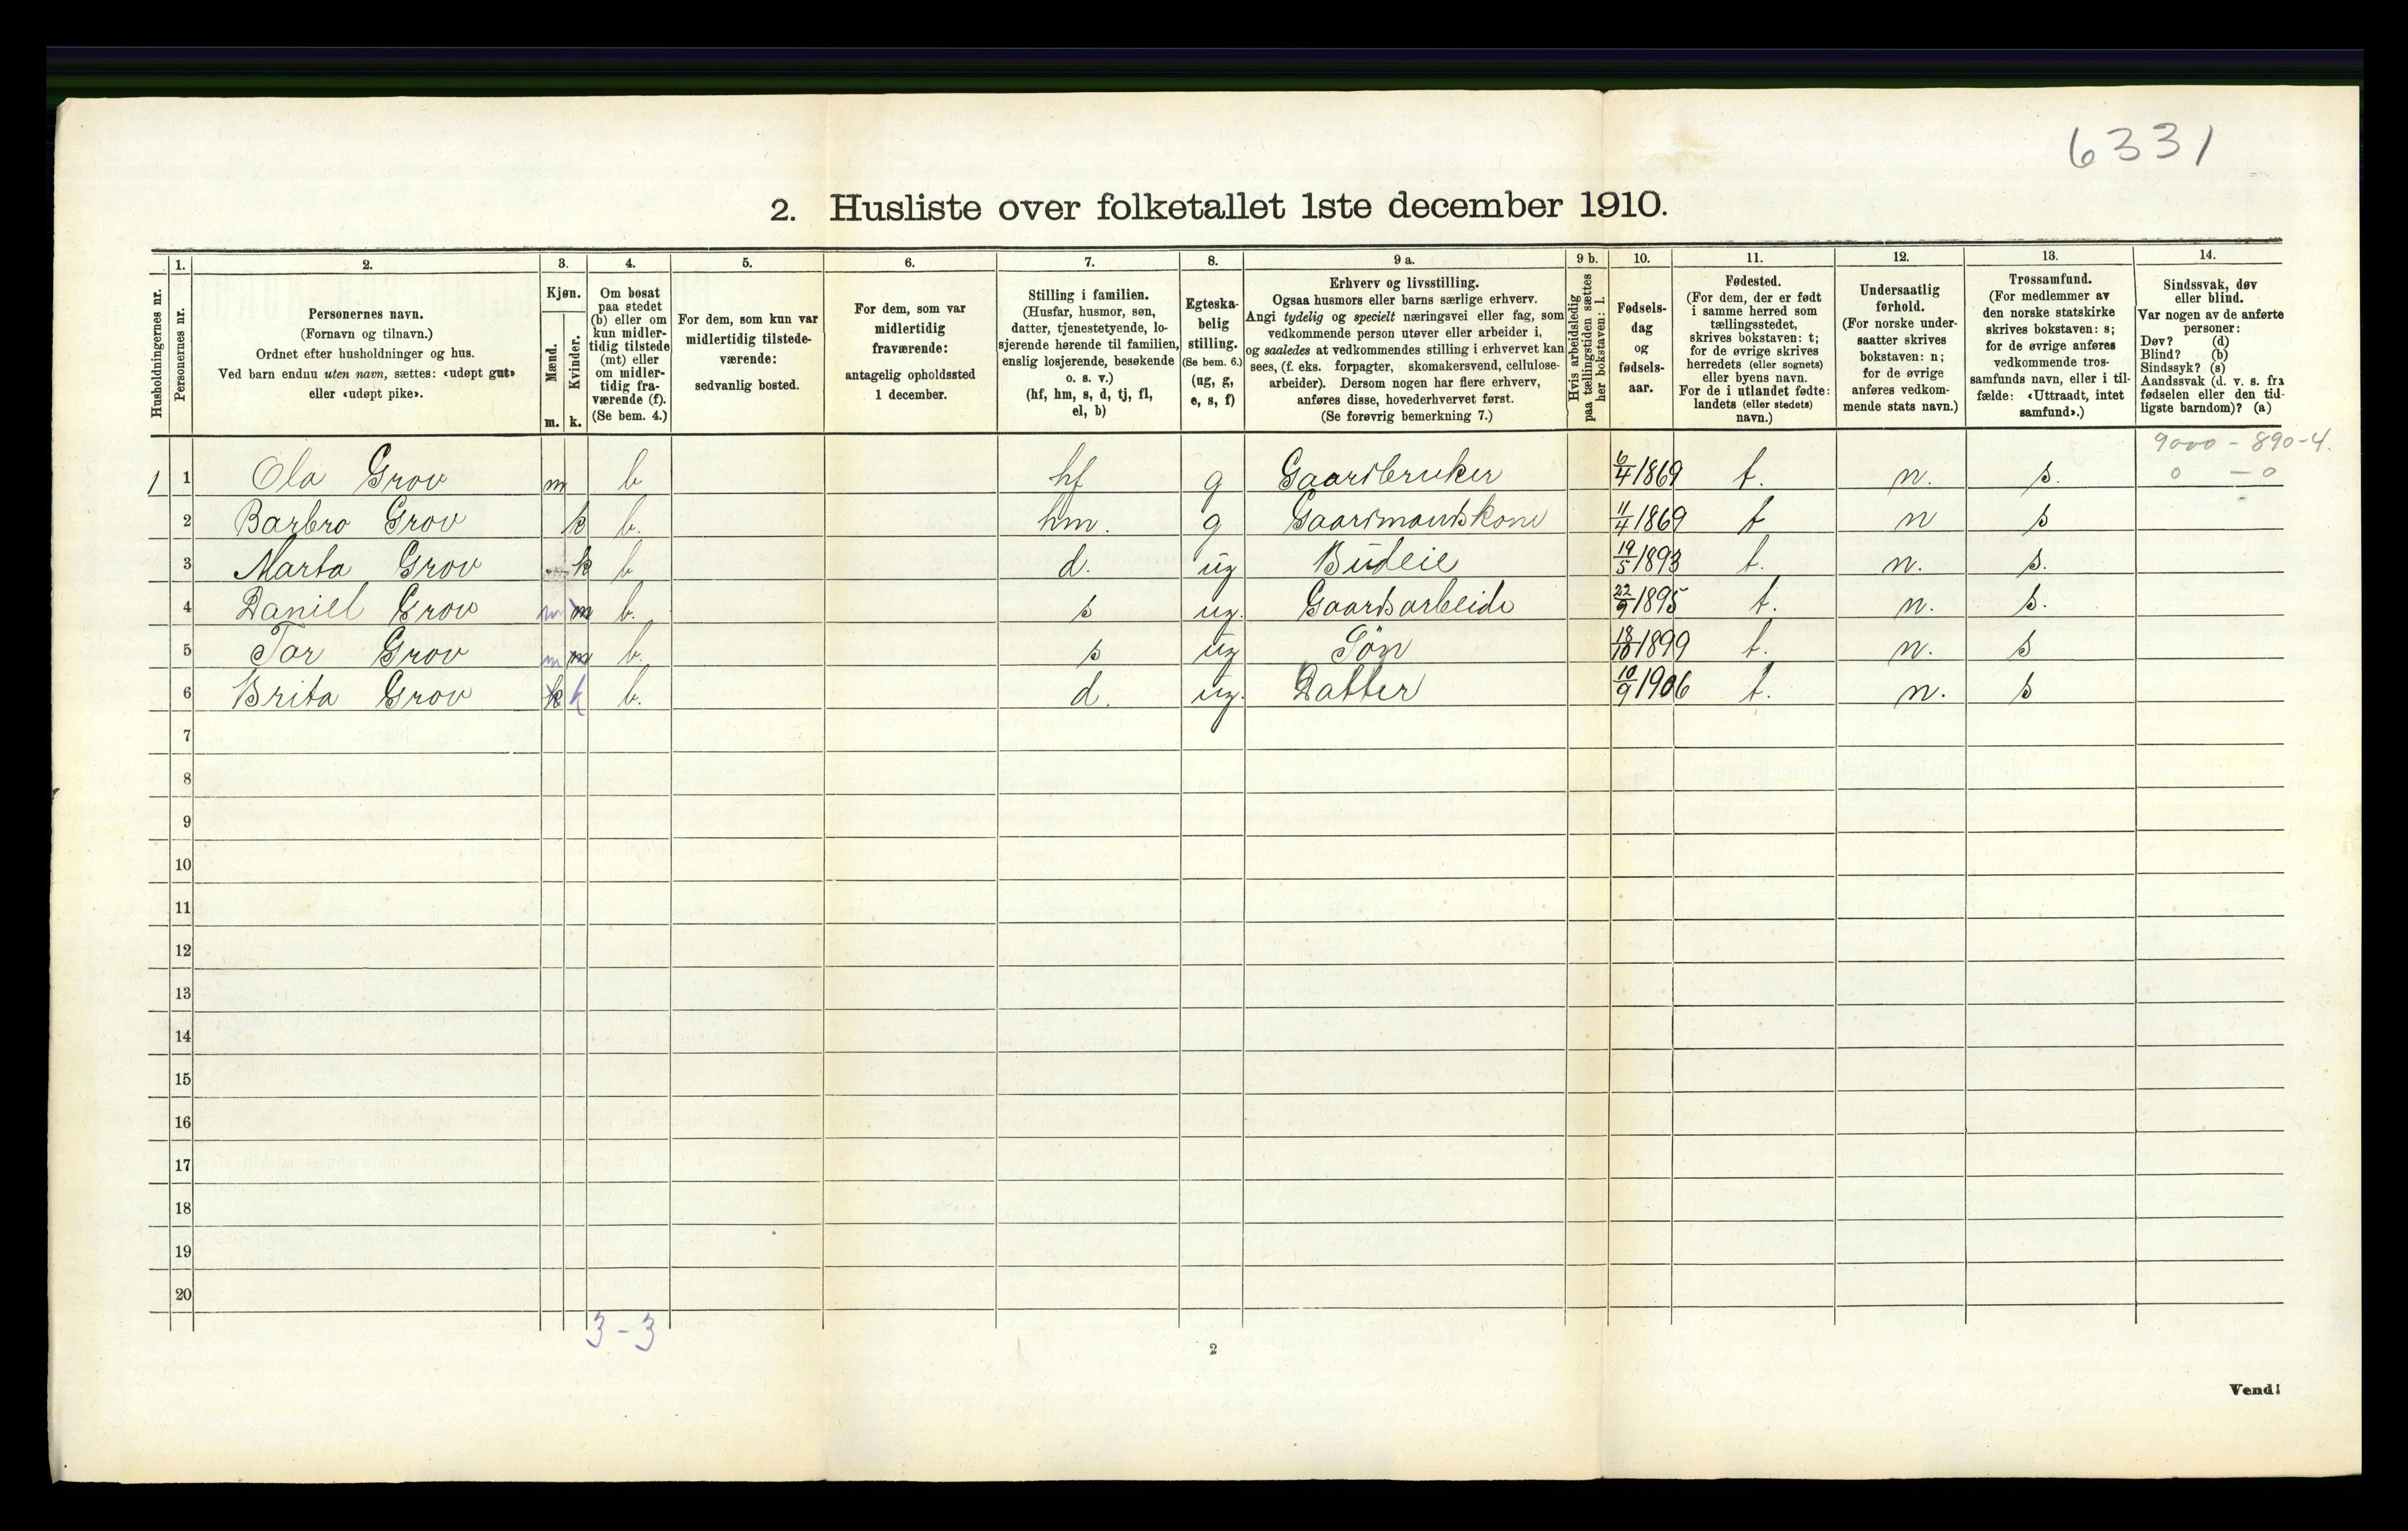 6331
2. Husliste over folketallet 1ste december 1910.
Husholdningernes nr.
1.
Personernes nr.
2.
Personernes navn.
(Fornavn og tilnavn.)
Ordnet efter husholdninger og hus.
Ved barn endnu uten navn, sættes: «udøpt gut»
eller «udøpt pike».
3.
Kjøn.
Mænd.
Kvinder.
m. k.
4.
Om bosat
paa stedet
(b) eller om
kun midler-
tidig tilstede
(mt) eller
om midler-
tidig fra-
værende (f).
(Se bem. 4.)
5.
For dem, som kun var
midlertidig tilstede-
værende:
sedvanlig bosted.
6.
For dem, som var
midlertidig
fraværende:
antagelig opholdssted
1 december.
7.
Stilling i familien.
(Husfar, husmor, søn,
datter, tjenestetyende, lo-
sjerende hørende til familien,
enslig losjerende, besøkende
o. s. v.)
(hf, hm, s, d, tj, fl,
el, b)
8.
Egteska-
belig
stilling.
(Se bem. 6.)
(ug, g,
e, s, f)
9 a.
Erhverv og livsstilling.
Ogsaa husmors eller barns særlige erhverv.
Angi tydelig og specielt næringsvei eller fag, som
vedkommende person utøver eller arbeider i,
og saaledes at vedkommendes stilling i erhvervet kan
sees, (f. eks. forpagter, skomakersvend, cellulose-
arbeider). Dersom nogen har flere erhverv,
anføres disse, hovederhvervet først.
(Se forøvrig bemerkning 7.)
9 b.
Hvis arbeidsledig
paa tællingstiden sættes
her bokstaven: l.
10.
Fødsels-
dag
og
fødsels-
aar.
11.
Fødested.
(For dem, der er født
i samme herred som
tællingsstedet,
skrives bokstaven: t;
for de øvrige skrives
herredets (eller sognets)
eller byens navn.
For de i utlandet fødte:
landets (eller stedets)
navn.)
12.
Undersaatlig
forhold.
(For norske under-
saatter skrives
bokstaven: n;
for de øvrige
anføres vedkom-
mende stats navn.)
13.
Trossamfund.
(For medlemmer av
den norske statskirke
skrives bokstaven: s;
for de øvrige anføres
vedkommende tros-
samfunds navn, eller i til-
fælde: «Uttraadt, intet
samfund».)
14.
Sindssvak, døv
eller blind.
Var nogen av de anførte
personer:
Døv? (d)
Blind? (b)
Sindssyk? (s)
Aandssvak (d. v. s. fra
fødselen eller den tid-
ligste barndom)? (a)
9000 - 890-4.
0 - 0
1 1 Ola Grov m b hf g Gaardbruker 6/4 1869 t. n. s.
2 Barbro Grov k b. hm. g Gaardmandskone 11/4 1869 t n s
3 Marta Grov k b d. ug Budeie 19/5 1893 t. n. s.
4 Daniel Grov m m b. s ug. Gaardsarbeide 22/9 1895 t. n. s.
5 Tor Grov m m b. s ug Søn 18/10 1899 t. n. s
6 Brita Grov k k b. d. ug. Datter 10/9 1906 t. n. s
7
8
9
10
11
12
13
14
15
16
17
18
19
20
3-3
2
Vend!